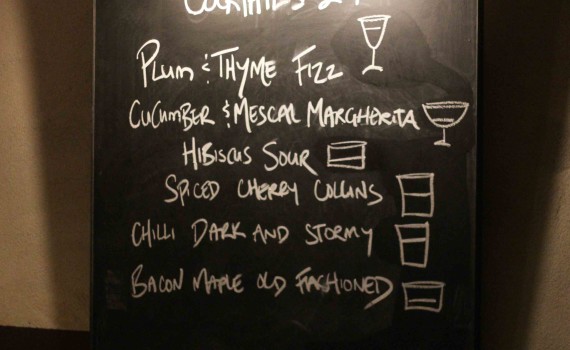 COCKTAILS
PLUM & THYME FIZZ
CUCUMBER & MESCAL MARGHERITA
HIBISCUS SOUR
SPICED CHERRY COLLINS
CHILLI DARK AND STORMY
BACON MAPLE OLD FASHIONED